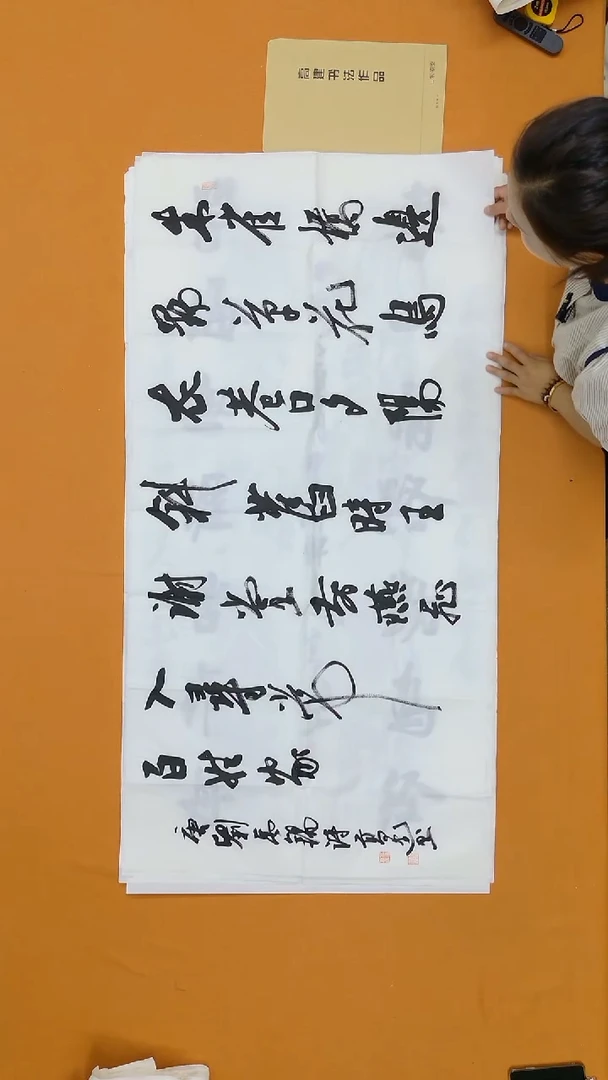 高建书法作品
朱雀橋邊
野草花烏
衣巷口夕陽
斜舊時王
謝堂前燕飛
入尋常
百姓家
唐劉禹錫詩高建書